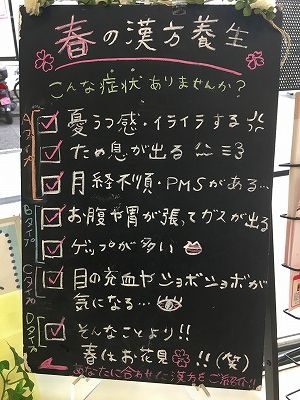 春の漢方養生
こんな症状ありませんか?
Aタイプ
憂うつ感・イライラする
ため息が出る
月経不順・PMSがある…
Bタイプ
お腹や胃が張ってガスが出る
ゲップが多い
Cタイプ
目の充血やショボショボが
気になる…
Dタイプ
そんなことより!!
春はお花見!!(笑)
あなたに合わせた漢方をご紹介!!